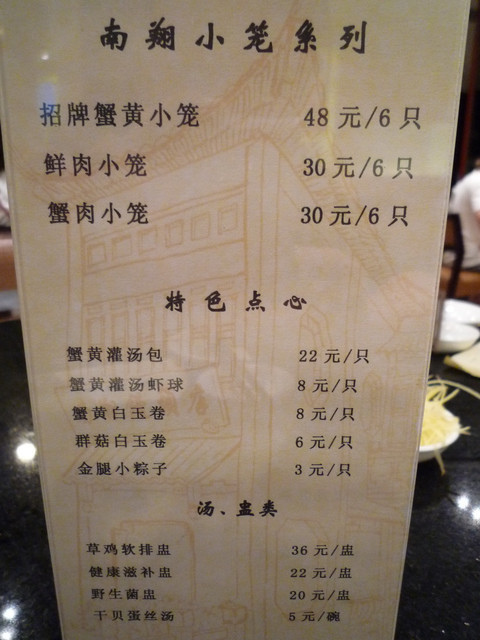 南翔小笼系列
招牌蟹黄小笼 48元/6只
鲜肉小笼 30元/6只
蟹肉小笼 30元/6只
特色点心
蟹黄灌汤包 22元/只
蟹黄灌汤虾球 8元/只
蟹黄白玉卷 8元/只
群菇白玉卷 6元/只
金腿小粽子 3元/只
汤、盅类
草鸡软排盅 36元/盅
健康滋补盅 22元/盅
野生菌盅 20元/盅
干贝蛋丝汤 5元/碗